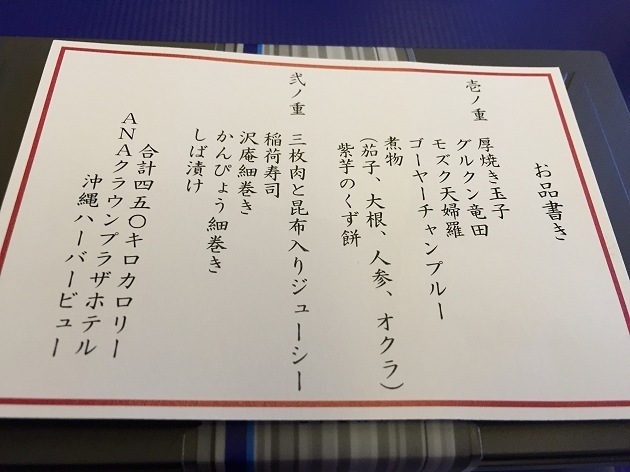 お品書き
壱ノ重
厚焼き玉子
グルクン竜田
モズク天婦羅
ゴーヤーチャンプルー
煮物
(茄子、大根、人参、オクラ)
紫芋のくず餅
弐ノ重
三枚肉と昆布入りジューシー
稲荷寿司
沢庵細巻き
かんぴょう細巻き
しば漬け
合計四五〇キロカロリー
ANAクラウンプラザホテル
沖縄ハーバービュー